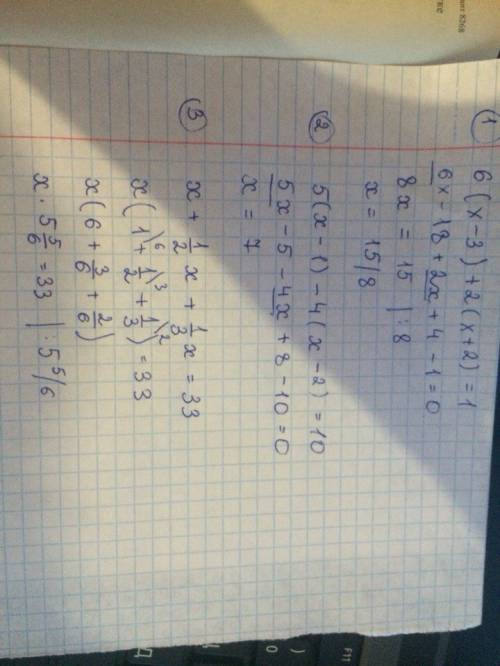 ① 6(x-3)+2(x+2)=1
6x-18+2x+4-1=0
8x = 15 |:8
x = 15/8
② 5(x-1)-4(x-2)=10
5x-5-4x+8-10=0
x = 7
③ x+1/2x+1/3x=33
x(1\6+1/2\3+1/3\2)=33
x(6+3/6+2/6)
x·5 5/6=33 |:5 5/6
F11